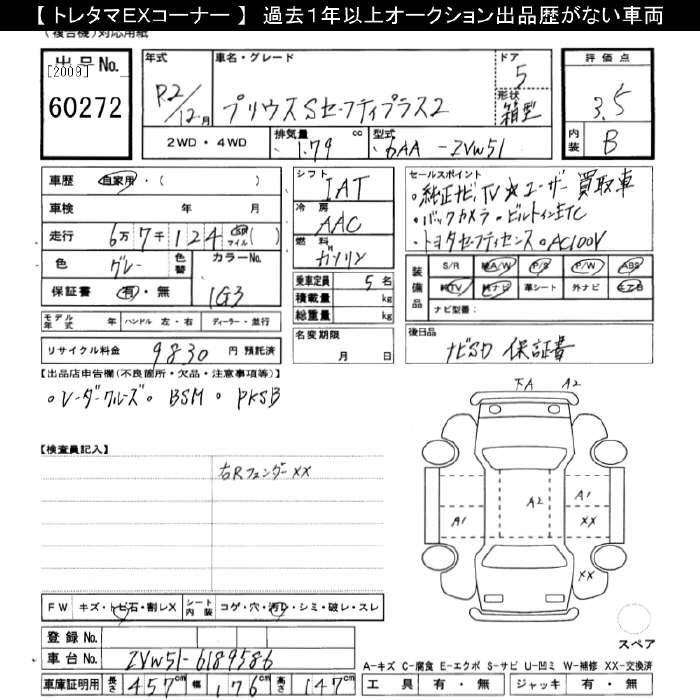 【 トレタマEXコーナー 】 過去1年以上オークション出品歴がない車両
(複合機)対応用紙
出品No.
[2009]
60272
年式
R2/12月
車名・グレード
プリウスSセーフティプラス2
ドア
5
形状
箱型
評価点
3.5
内装
B
2WD・4WD
排気量
1.79 cc
型式
6AA-ZVW51
車歴 自家用・( )
車検 年 月
走行 6万7千124 km マイル ( )
色 グレー 色替 カラーNo. 1G3
保証書 有・無
モデル年式 年 ハンドル 左・右 ディーラー・並行
リサイクル料金 9830 円 預託済
シフト
IAT
冷房
AAC
燃料
ガソリン
乗車定員 5 名
積載量 kg
総重量 kg
名変期限
月 日
セールスポイント
・純正ナビTV ★ユーザー買取車
・バックカメラ・ビルトインETC
・トヨタセーフティセンス・AC100V
装備品
S/R 純A/W P/S P/W ABS
純TV 純ナビ 革シート 外ナビ エアB
ナビ型番:
後日品
ナビSD 保証書
【出品店申告欄(不良箇所・欠品・注意事項等)】
・レーダークルーズ・BSM・PKSB
【検査員記入】
右Rフェンダー××
下A A2
A2
A1
A1
××
××
スペア
FW キズ・トビ石・割レX シート内装 コゲ・穴・汚レ・シミ・破レ・スレ
登録No.
車台No. ZVW51-6189586
車庫証明用 長さ 457cm 幅 176cm 高さ 147cm
A-キズ C-腐食 E-エクボ S-サビ U-凹ミ W-補修 XX-交換済
工具 有・無 ジャッキ 有・無